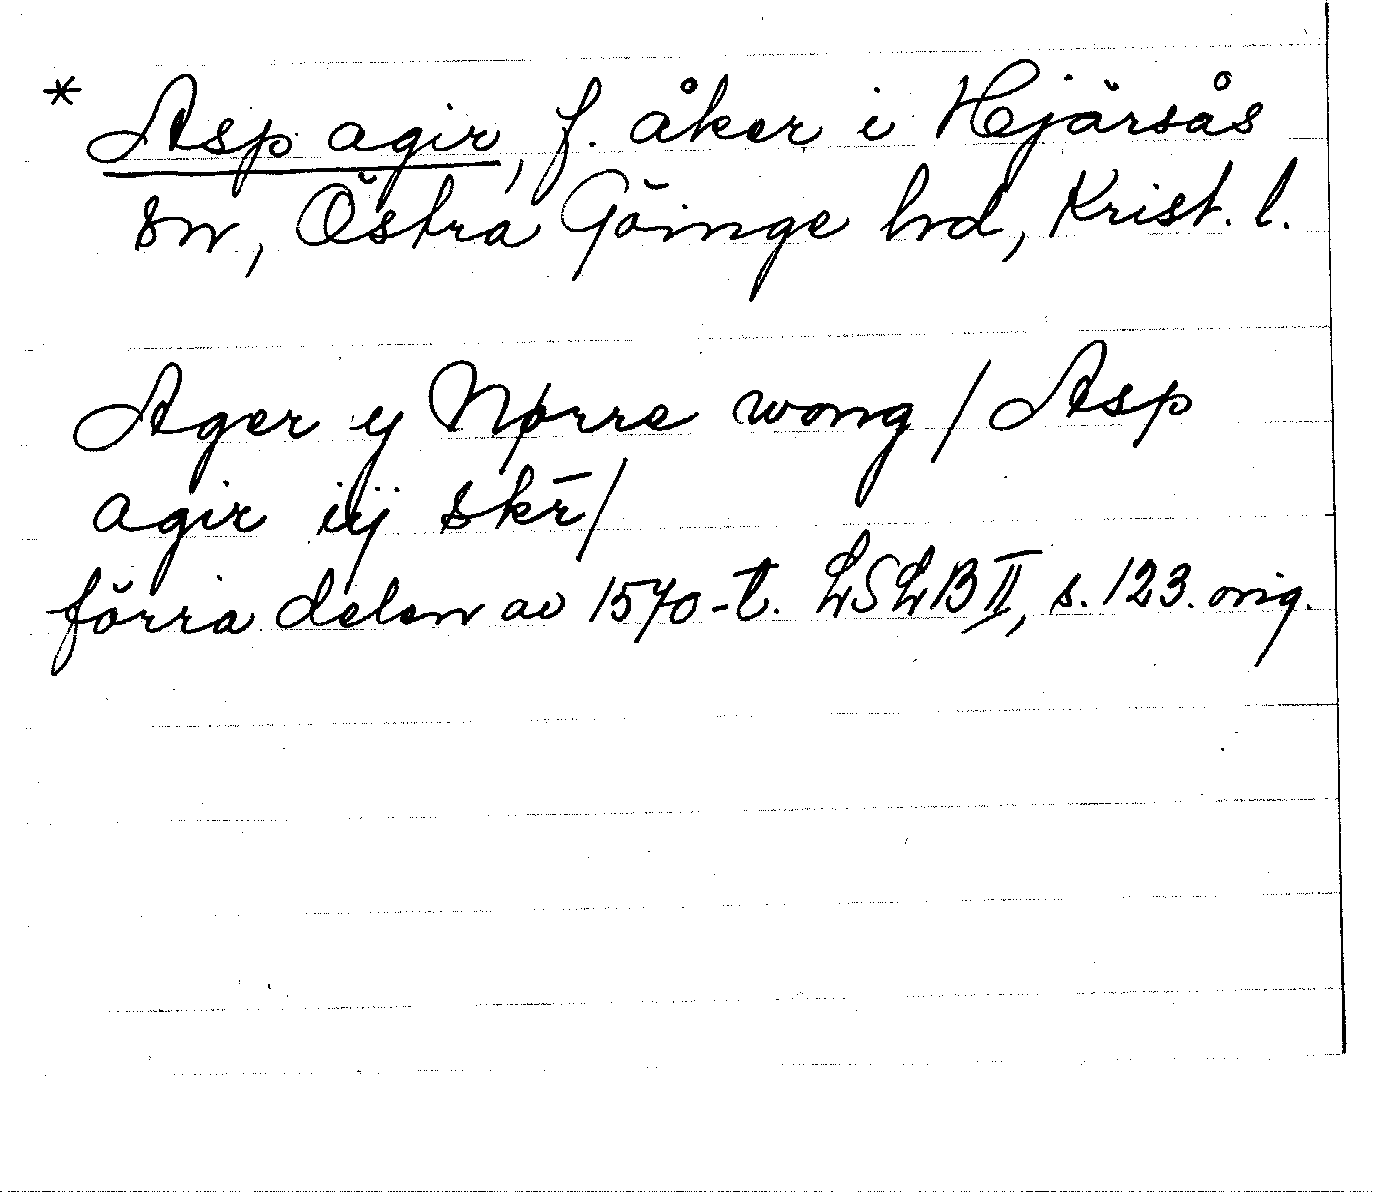 * Asp agir, f. åker i Hjärsås
sn, Östra Göinge hd, Krist. l.
Ager y Nørre wong / Asp
agir iij skr̄ /
förra delen av 1570-t. LSLB II, s. 123. orig.